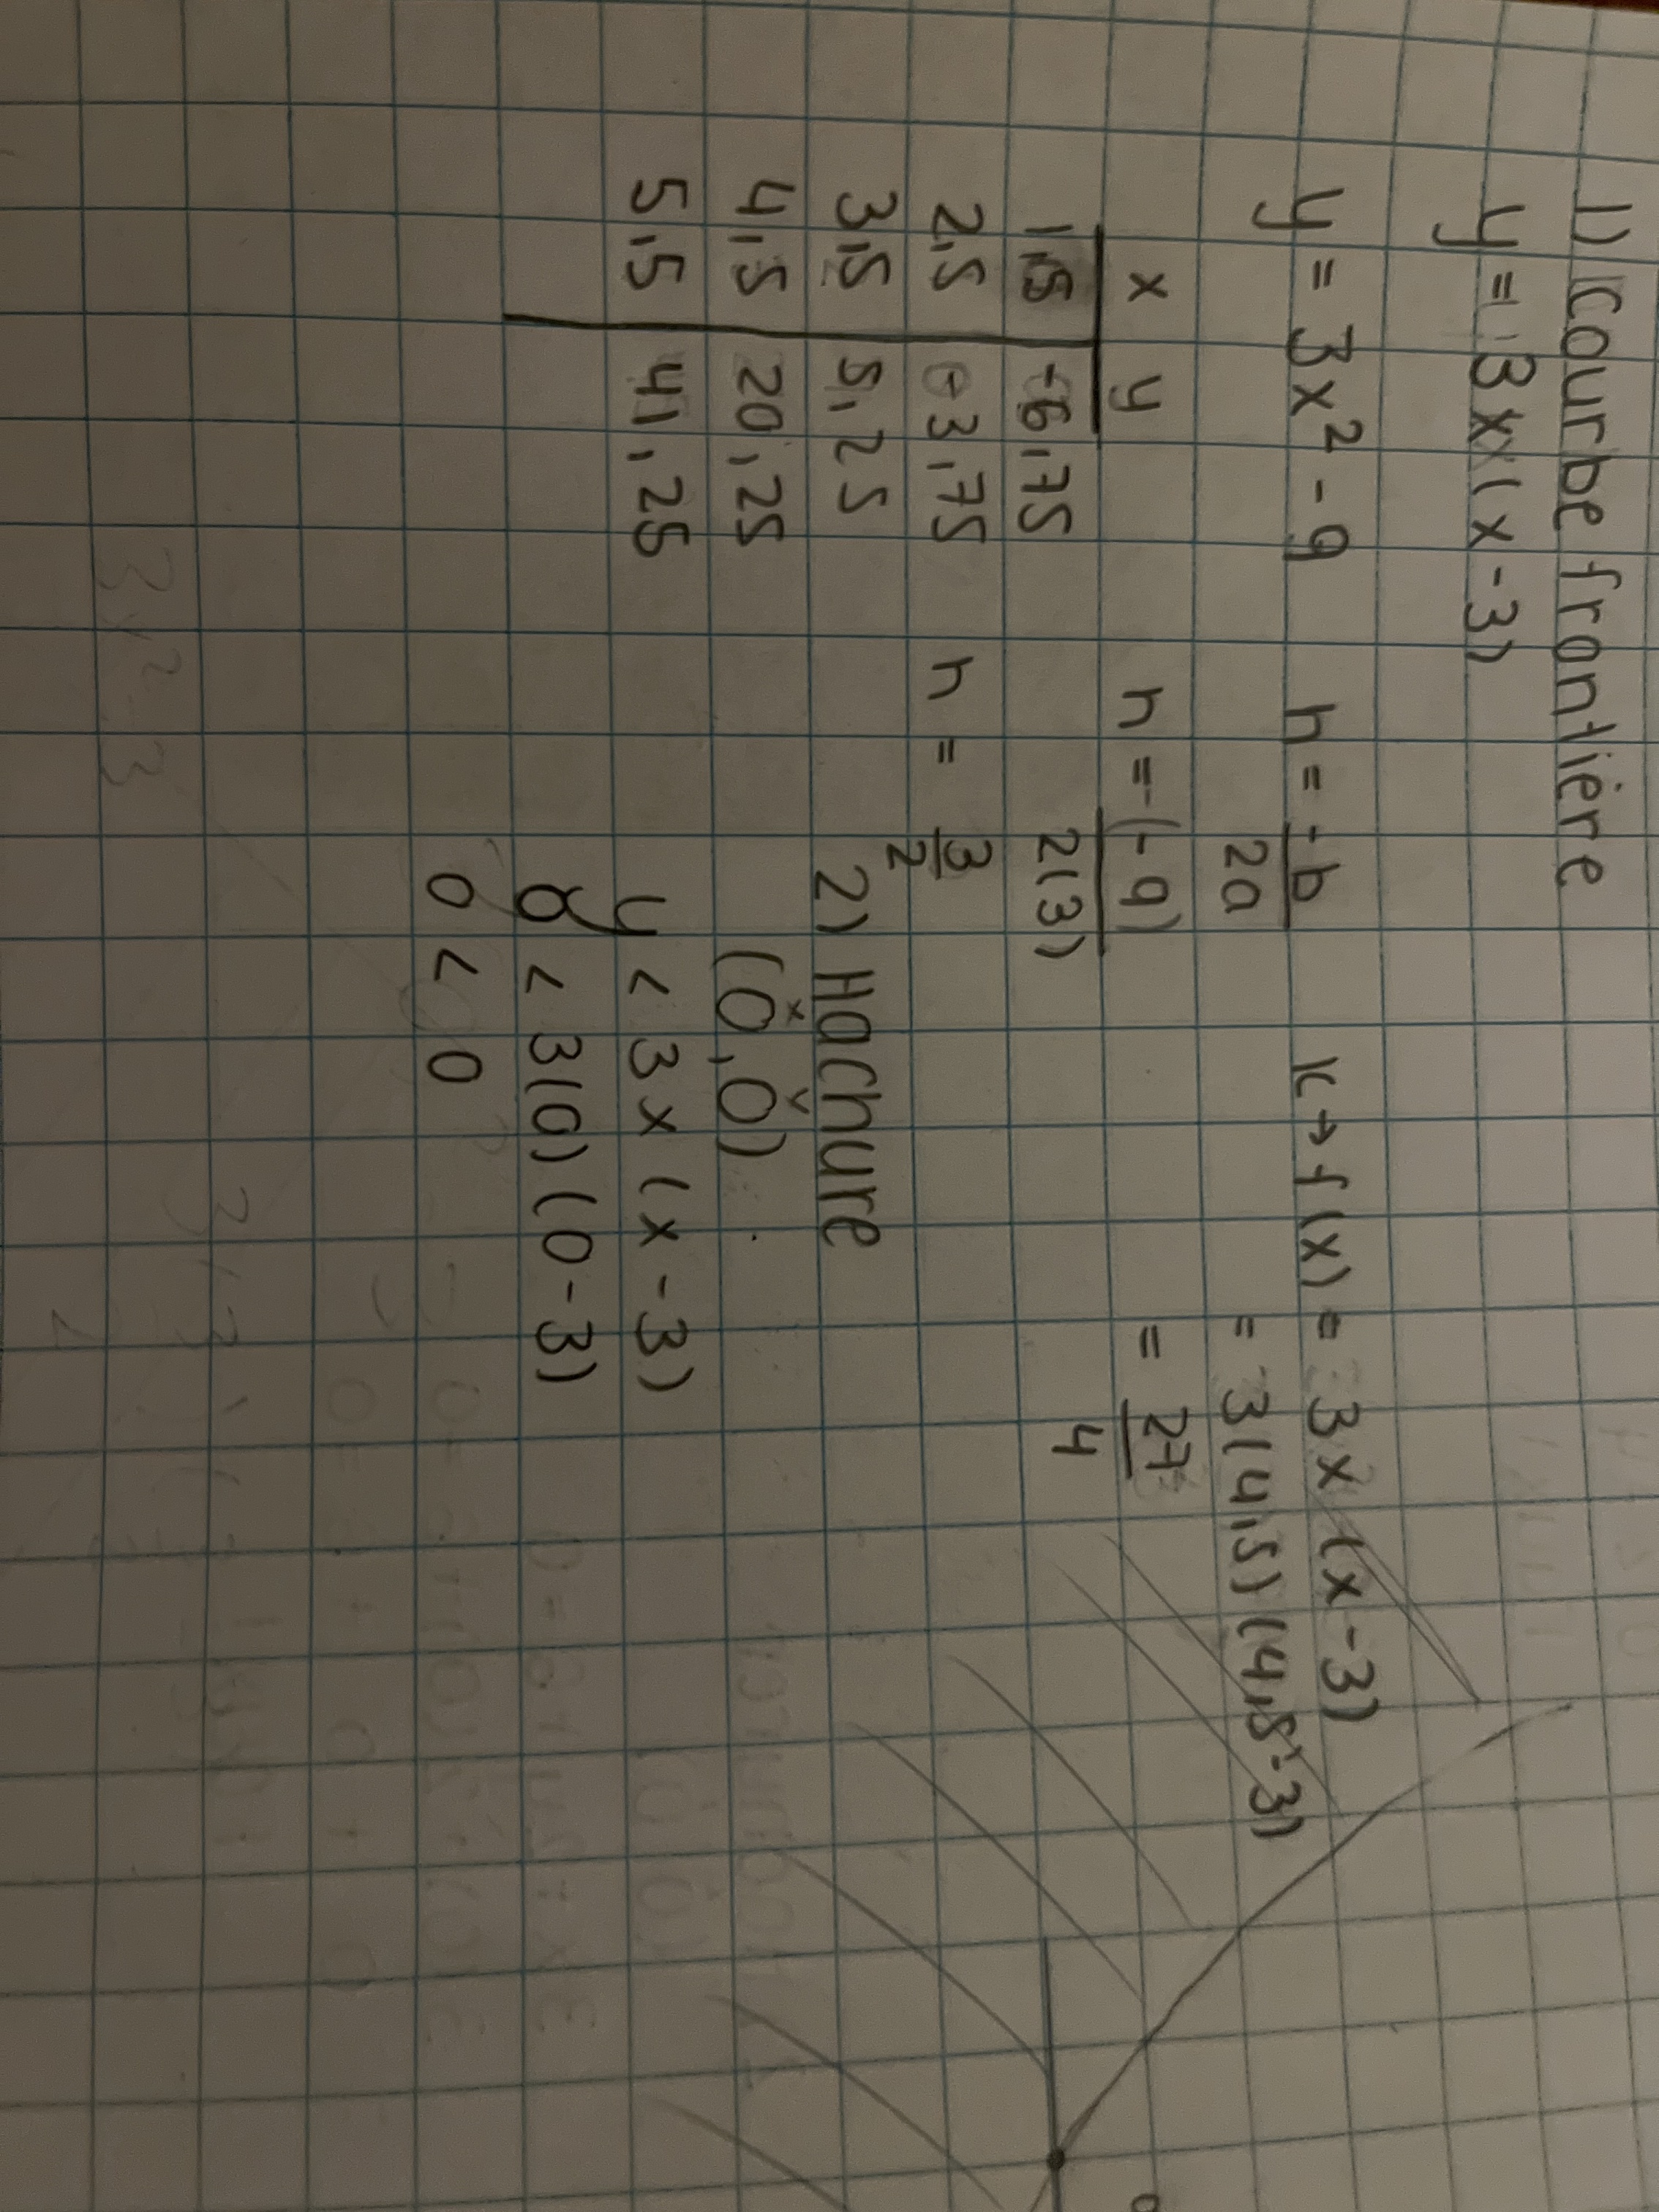 1) Courbe frontière
y = 3x(x-3)
y = 3x² - 9
h = -b/2a
h = -(-9)/2(3)
h = 3/2
k → f(x) = 3x(x-3)
= 3(4,5)(4,5-3)
= 27/4
x | y
1,5 | -6,75
2,5 | -3,75
3,5 | 5,25
4,5 | 20,25
5,5 | 41,25
2) Hachure
x y
(0,0)
y < 3x(x-3)
0 < 3(0)(0-3)
0 < 0
3x² - 3